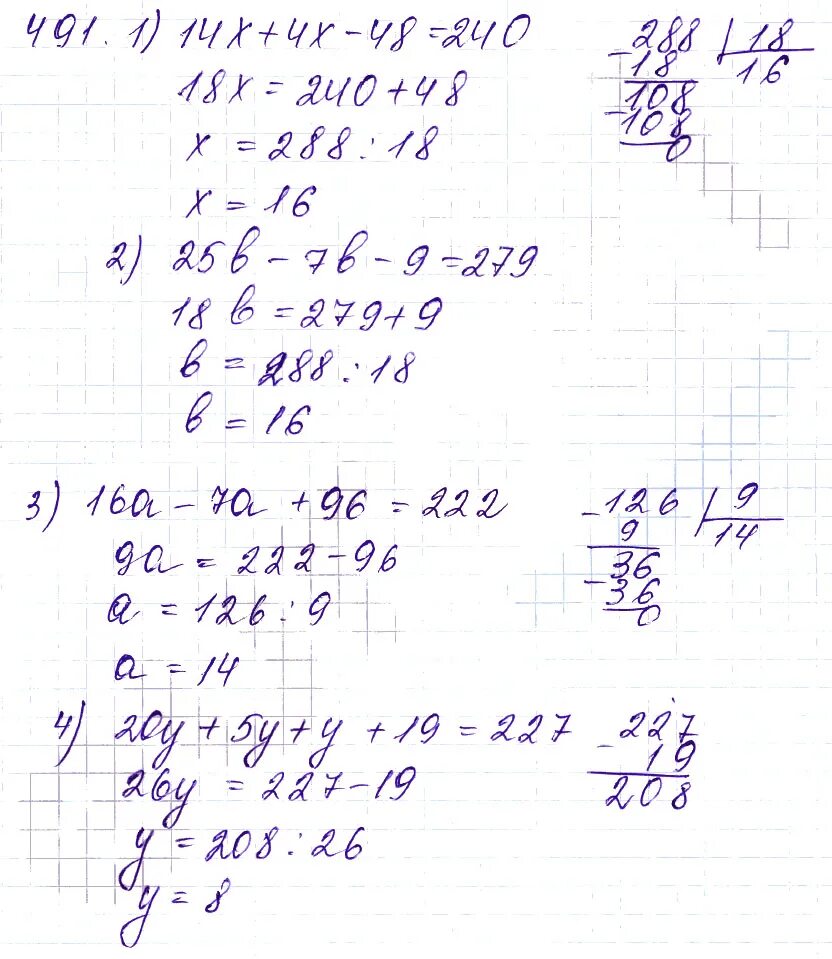 491. 1) 14x+4x-48=240
18x=240+48
x=288:18
x=16
-288 | 18
18 16
108
-108
0
2) 25b-7b-9=279
18b=279+9
b=288:18
b=16
3) 16a-7a+96=222
9a=222-96
a=126:9
a=14
-126 | 9
9 14
36
-36
0
4) 20y+5y+y+19=227
26y=227-19
y=208:26
y=8
-227
19
208